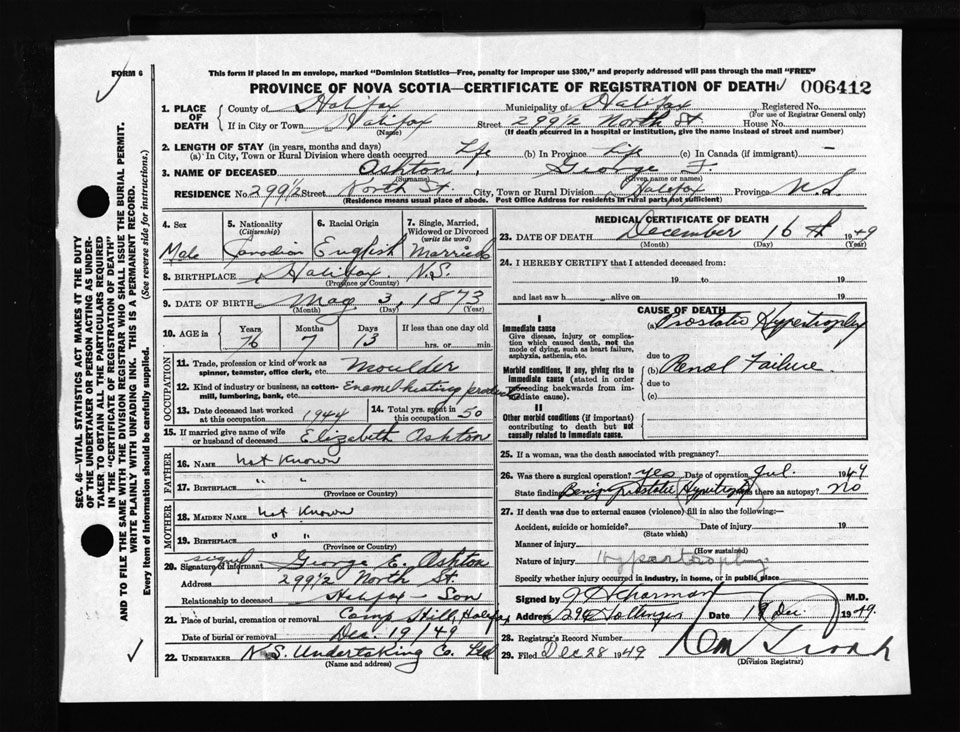 FORM 6
This form if placed in an envelope, marked "Dominion Statistics—Free, penalty for improper use $300," and properly addressed will pass through the mail "FREE"
PROVINCE OF NOVA SCOTIA—CERTIFICATE OF REGISTRATION OF DEATH 006412
1. PLACE OF DEATH
County of Halifax Municipality of Halifax Registered No.
(For use of Registrar General only)
If in City or Town Halifax Street 299½ North St House No.
(Name) (If death occurred in a hospital or institution, give the name instead of street and number)
2. LENGTH OF STAY (in years, months and days)
(a) In City, Town or Rural Division where death occurred Life (b) In Province Life (c) In Canada (if immigrant) —
3. NAME OF DECEASED Ashton, George F.
(Surname) (Given name or names)
RESIDENCE No. 299½ Street North St. City, Town or Rural Division Halifax Province N.S.
(Residence means usual place of abode. Post Office Address for residents in rural parts not sufficient)
4. Sex
Male
5. Nationality
(Citizenship)
Canadian
6. Racial Origin
English
7. Single, Married, Widowed or Divorced
(write the word)
Married
8. BIRTHPLACE Halifax, N.S.
(Province or Country)
9. DATE OF BIRTH May 3, 1873
(Month) (Day) (Year)
10. AGE in
Years Months Days If less than one day old
76 7 13 hrs. or min.
OCCUPATION
11. Trade, profession or kind of work as spinner, teamster, office clerk, etc. Moulder
12. Kind of industry or business, as cotton-mill, lumbering, bank, etc. Enamel-heating products
13. Date deceased last worked at this occupation 1944
14. Total yrs. spent in this occupation 50
15. If married give name of wife or husband of deceased Elizabeth Ashton
FATHER
16. NAME Not Known
17. BIRTHPLACE " "
(Province or Country)
MOTHER
18. MAIDEN NAME Not Known
19. BIRTHPLACE " "
(Province or Country)
signed
20. Signature of informant George E. Ashton
Address 299½ North St.
Halifax — Son
Relationship to deceased
21. Place of burial, cremation or removal Camp Hill, Halifax
Date of burial or removal Dec. 19/49
22. UNDERTAKER N.S. Undertaking Co. Ltd
(Name and address)
MEDICAL CERTIFICATE OF DEATH
23. DATE OF DEATH December 16th 1949
(Month) (Day) (Year)
24. I HEREBY CERTIFY that I attended deceased from:
19 to 19
and last saw h alive on 19
CAUSE OF DEATH
I
Immediate cause
Give disease, injury or complication which caused death, not the mode of dying, such as heart failure, asphyxia, asthenia, etc.
(a) Prostatic Hypertrophy
due to
Morbid conditions, if any, giving rise to immediate cause (stated in order proceeding backwards from immediate cause).
(b) Renal Failure
due to
(c)
II
Other morbid conditions (if important) contributing to death but not causally related to immediate cause.
25. If a woman, was the death associated with pregnancy?
26. Was there a surgical operation? yes Date of operation Jul. 1947
State findings Benign prostatic Hypertrophy Was there an autopsy? No
27. If death was due to external causes (violence) fill in also the following:—
Accident, suicide or homicide? Date of injury 19
(State which)
Manner of injury
(How sustained)
Nature of injury Hypertrophy
Specify whether injury occurred in industry, in home, or in public place
Signed by M.D.
Address Date Dec. 1949
28. Registrar's Record Number
29. Filed Dec 28 1949
(Division Registrar)
SEC. 46—VITAL STATISTICS ACT MAKES IT THE DUTY
OF THE UNDERTAKER OR PERSON ACTING AS UNDER-
TAKER TO OBTAIN ALL THE PARTICULARS REQUIRED
IN THE "CERTIFICATE OF REGISTRATION OF DEATH"
AND TO FILE THE SAME WITH THE DIVISION REGISTRAR WHO SHALL ISSUE THE BURIAL PERMIT.
WRITE PLAINLY WITH UNFADING INK. THIS IS A PERMANENT RECORD.
Every item of information should be carefully supplied. (See reverse side for instructions.)